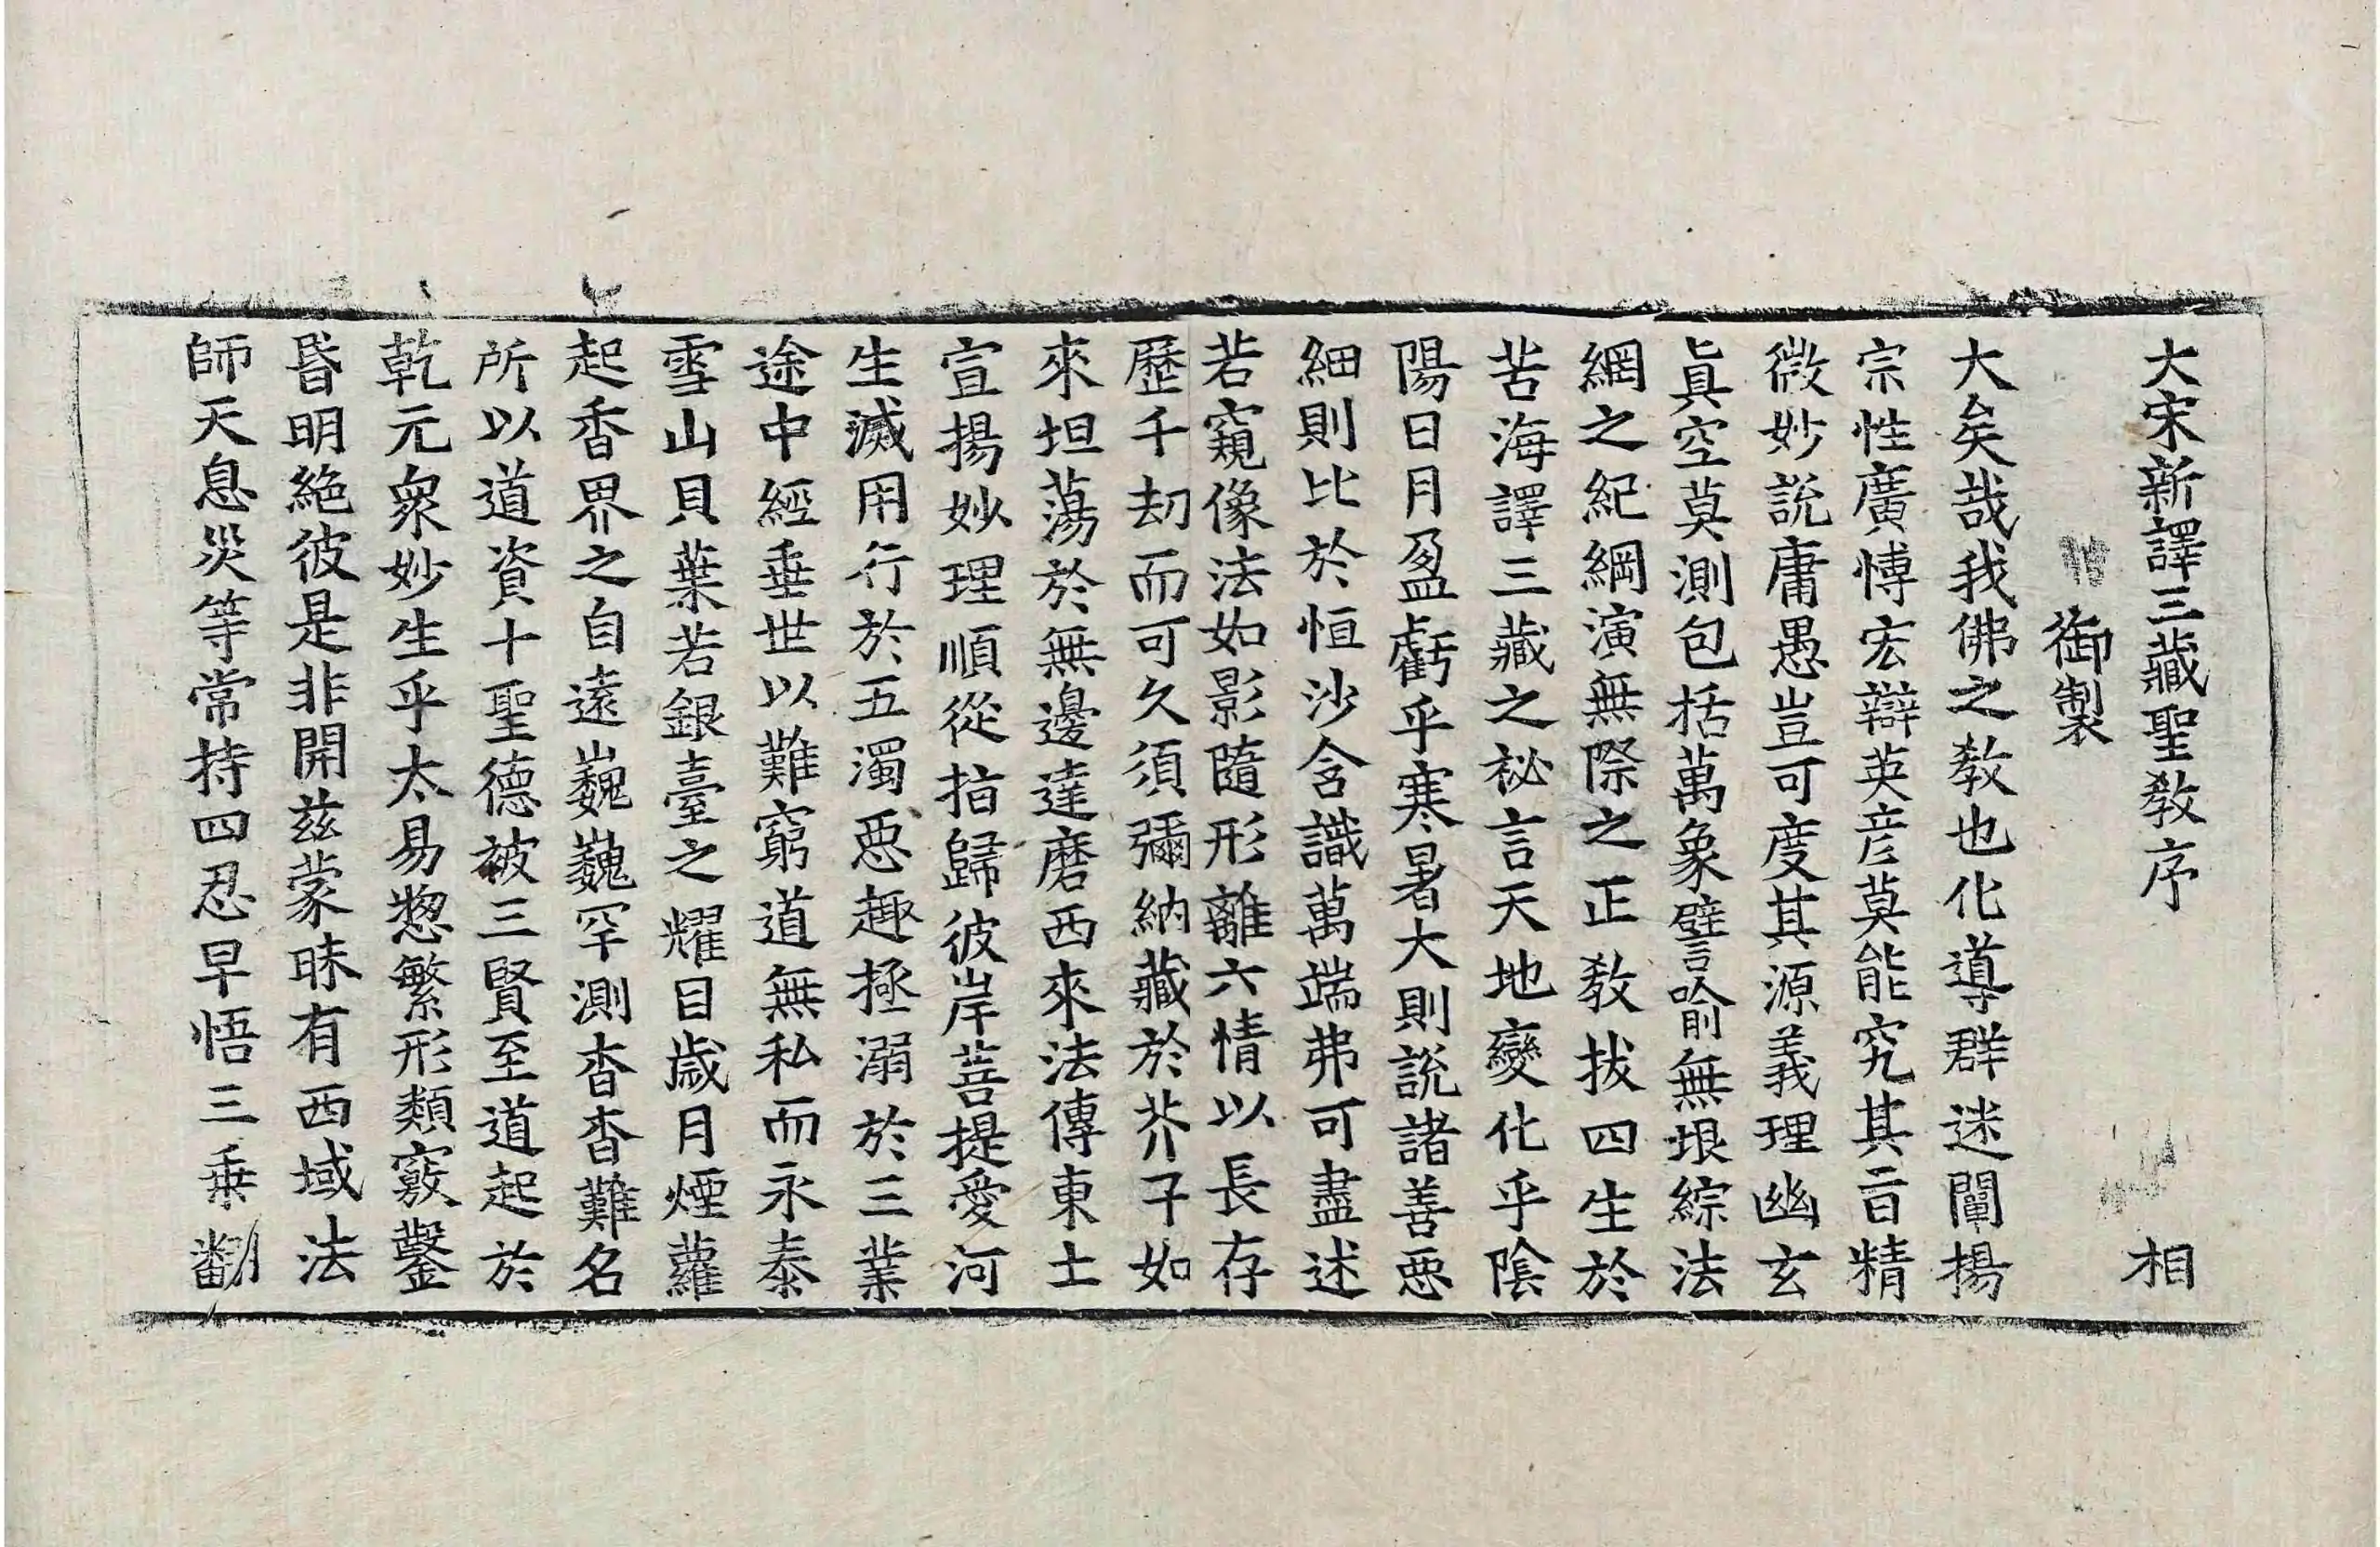 大宋新譯三藏聖教序　相
御製
大矣哉我佛之教也化導群迷闡揚
宗性廣愽宏辯英彦莫能究其㫖精
微妙説庸愚豈可度其源義理幽玄
眞空莫測包括萬象譬喻無垠綜法
網之紀綱演無際之正教拔四生於
苦海譯三藏之祕言天地變化乎陰
陽日月盈虧乎寒暑大則說諸善惡
細則比於恒沙含識萬端弗可盡述
若窺像法如影隨形離六情以長存
歷千刧而可久須彌納藏於芥子如
來坦蕩於無邊達磨西來法傳東土
宣揚妙理順從指歸彼岸菩提愛河
生滅用行於五濁惡趣拯溺於三業
途中經垂世以難窮道無私而永泰
雪山貝葉若銀臺之耀目歲月煙蘿
起香界之自遠巍巍罕測杳杳難名
所以道資十聖德被三賢至道起於
乾元衆妙生乎太易惣繁形類竅鑿
昏明絶彼是非開兹蒙昧有西域法
師天息災等常持四忍早悟三乗翻